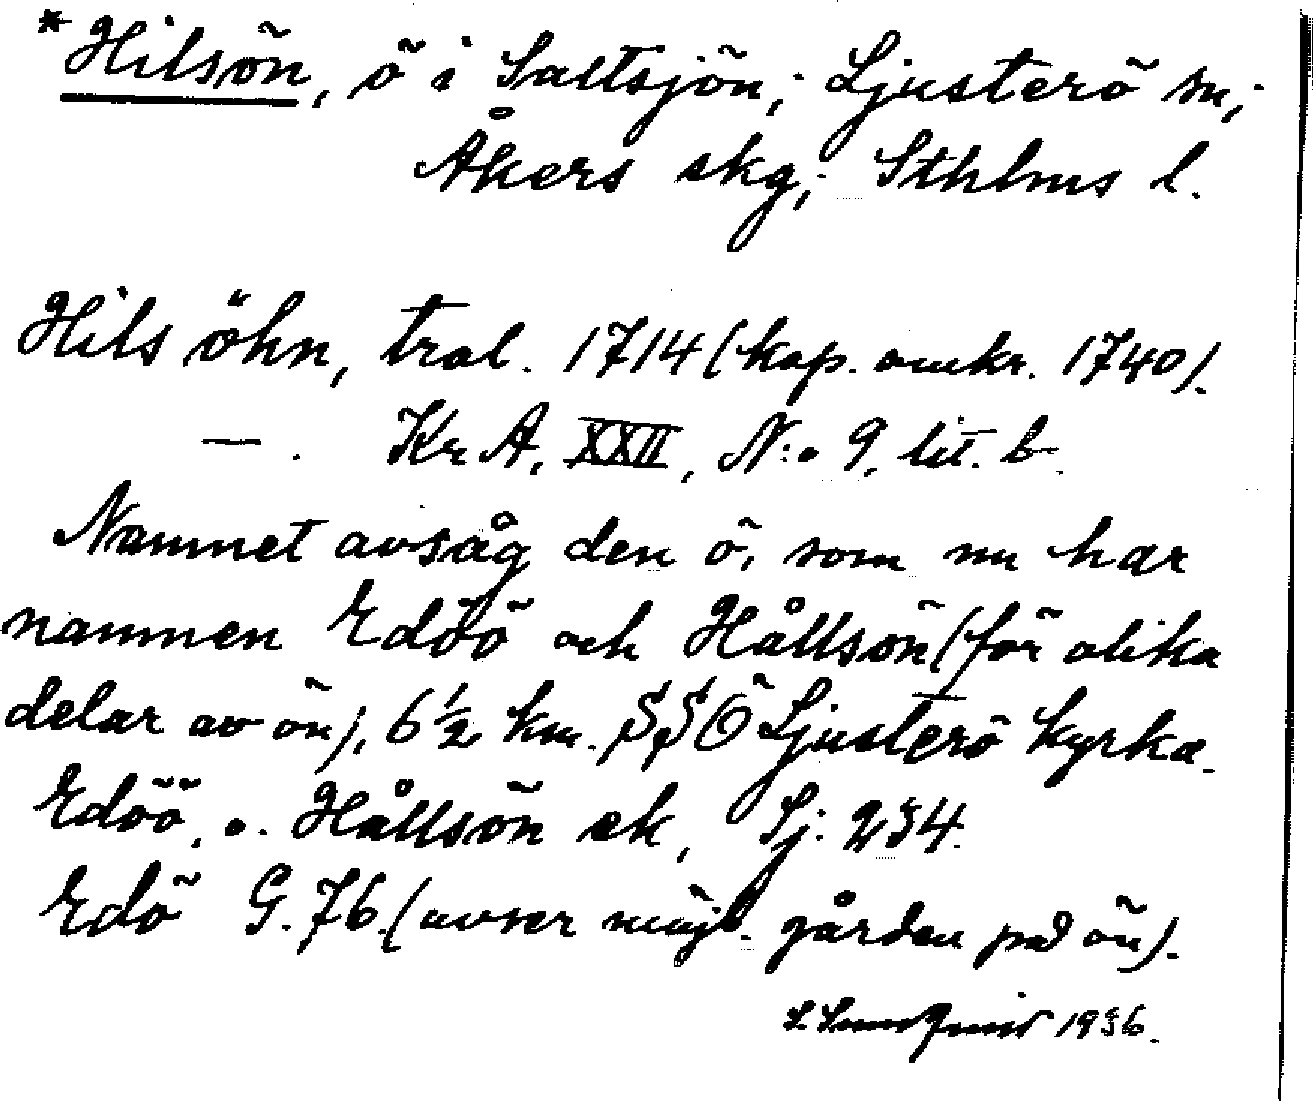 * Hilsön, ö i Saltsjön; Ljusterö sn;
Åkers skg; Sthlms l.
Hils öhn, tral. 1714 (kop. omkr. 1740).
— . Kr A, XXII, N:o 9, lit. b.
Namnet avsåg den ö, som nu har
namnen Edöö och Hållsön (för olika
delar av ön), 6 1/2 km. SSÖ Ljusterö kyrka.
Edöö, o. Hållsön ek, Sj: 234.
Edö G. 76. (avser möjl. gården på ön).
1936.